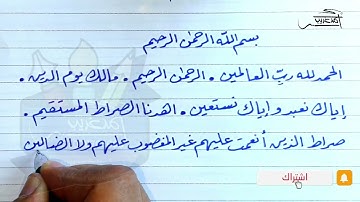 بسم الله الرحمن الرحيم
الحمد لله ربّ العالمين . الرحمن الرحيم . مالك يوم الدين .
إياك نعبد وإياك نستعين . اهدنا الصراط المستقيم .
صراط الذين أنعمت عليهم غير المغضوب عليهم ولا الضالين
اشتراك